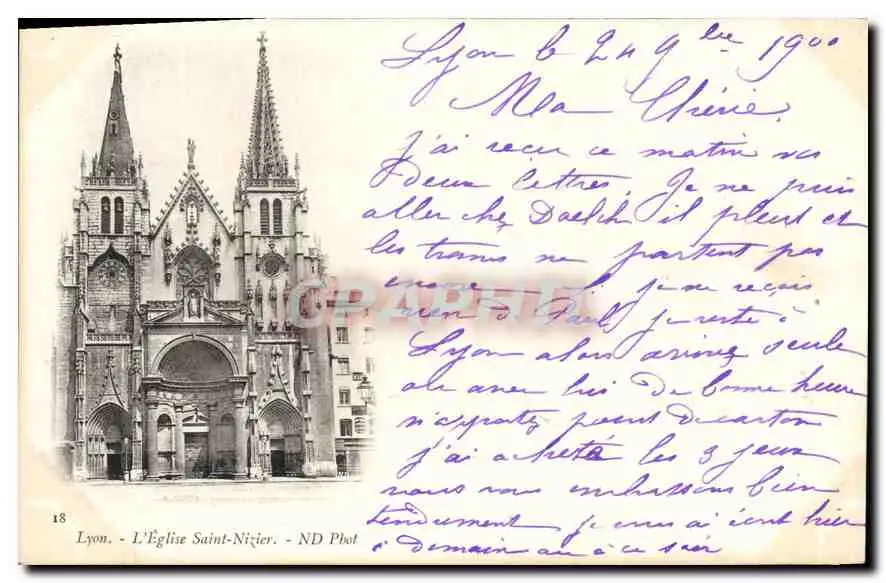 Lyon le 24 9bre 1900
Ma Chérie,
j'ai reçu ce matin vos
Deux lettres. Je ne puis
aller chez il pleut et
les trams ne partent pas
encore si je ne reçois
rien de Paul je reste à
Lyon alors arrivez seule
ou avec lui de bonne heure
n'apportez point de carton
j'ai acheté les 3 jeux
nous vous embrassons bien
tendrement je vous ai écrit hier
à demain ou à ce soir
CARPHIL
18
Lyon. - L'Église Saint-Nizier. - ND Phot